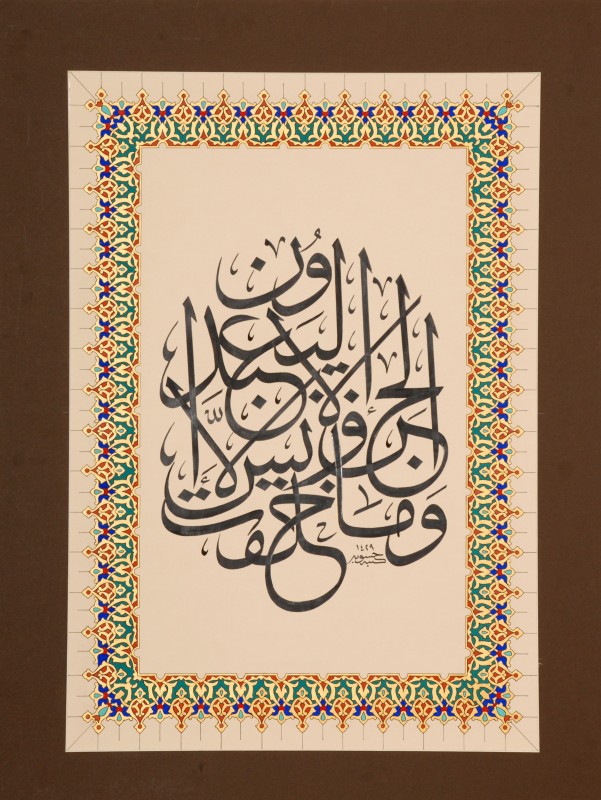 وما خلقت الجن والإنس إلا ليعبدون
١٤٢٩